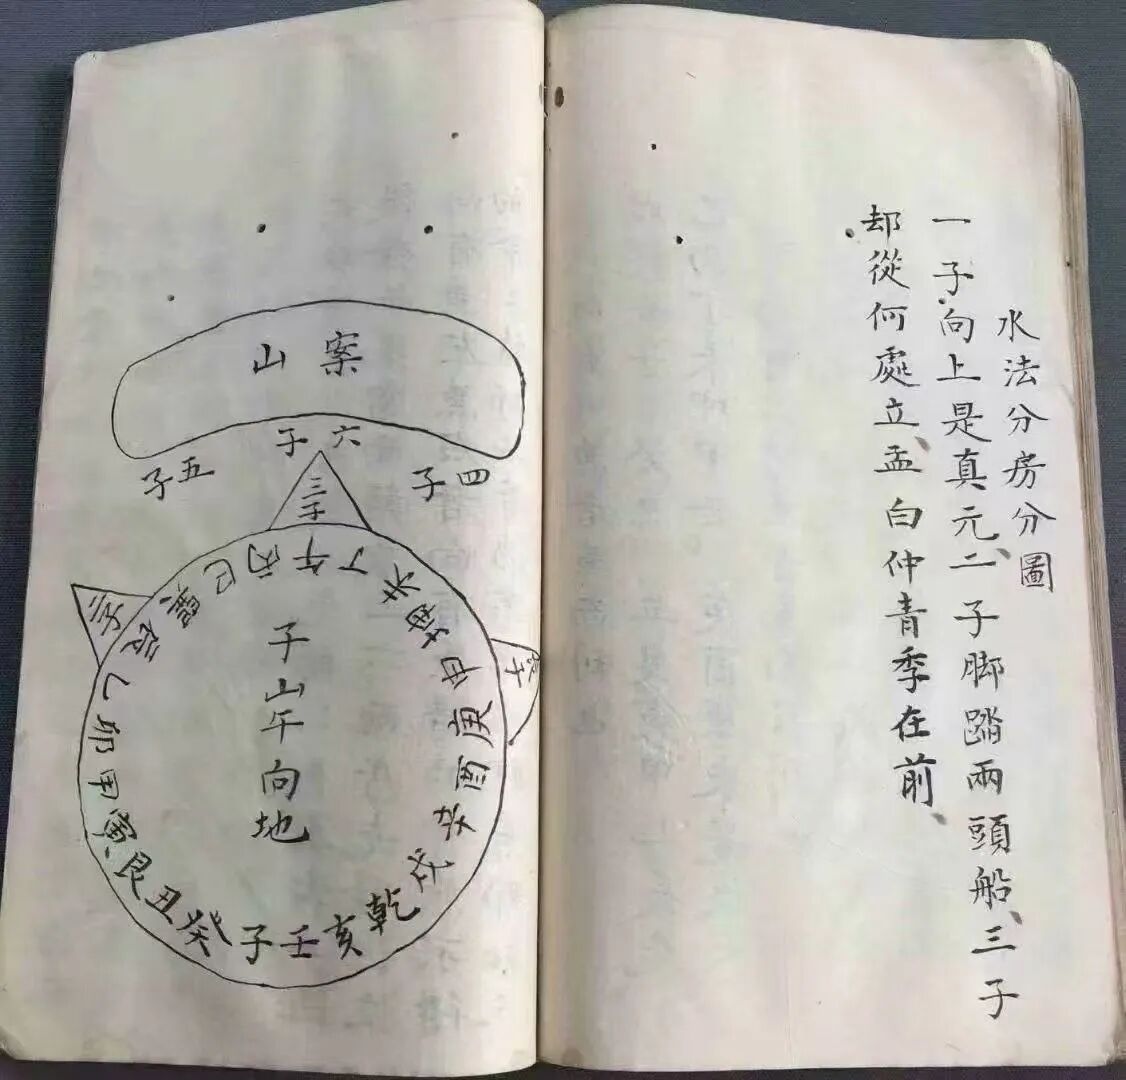 水法分房分圖
一子向上是真元、二子脚踏兩頭船、三子
却從何處立、孟白仲青季在前、
案山
六子
四子
五子
三子
子山午向地
巽巳丙午丁未坤申庚酉辛戌乾亥壬子癸丑艮寅甲卯乙辰